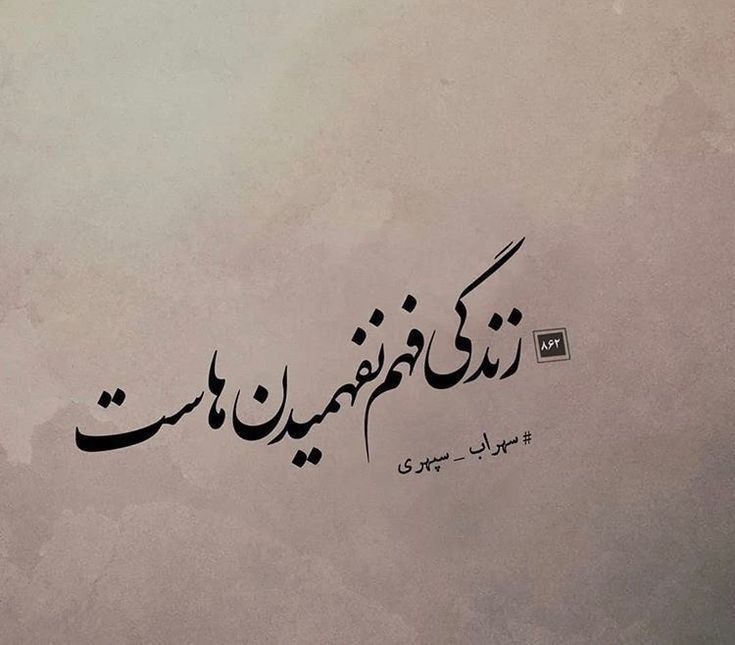 ۸۶۲
زندگی فهم نفهمیدن هاست
#سهراب_سپهری